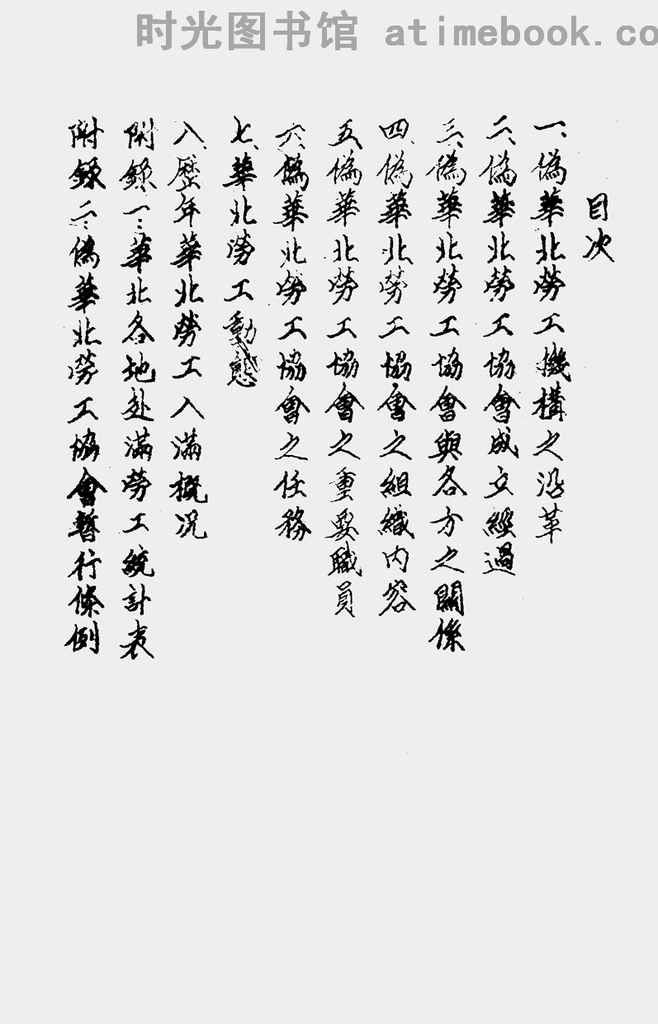 时光图书馆 atimebook.co
目次
一、偽華北勞工機構之沿革
二、偽華北勞工協會成立經過
三、偽華北勞工協會與各方之關係
四、偽華北勞工協會之組織內容
五、偽華北勞工協會之重要職員
六、偽華北勞工協會之任務
七、華北勞工動態
八、歷年華北勞工入滿概况
附錄一：華北各地赴滿勞工統計表
附錄二：偽華北勞工協會暫行條例